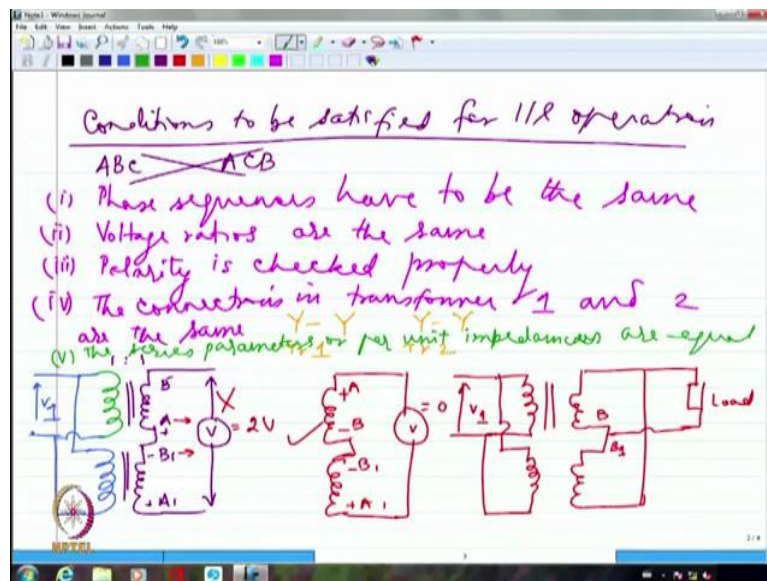 Note1 - Windows Journal
File Edit View Insert Actions Tools Help
Conditions to be satisfied for 11l operation
ABC ACB
(i) Phase sequences have to be the same
(ii) Voltage ratios are the same
(iii) Polarity is checked properly
(iv) The connections in transformer 1 and 2
are the same Y - Y Y - Y
(v) The series parameters or per unit impedances are equal
1 : 1 Tr 1 Tr 2
V1 B A + - B1 + A1 V X = 2V
+A -B -B1 +A1 V = 0
V1 B B1 Load
NPTEL
2/4